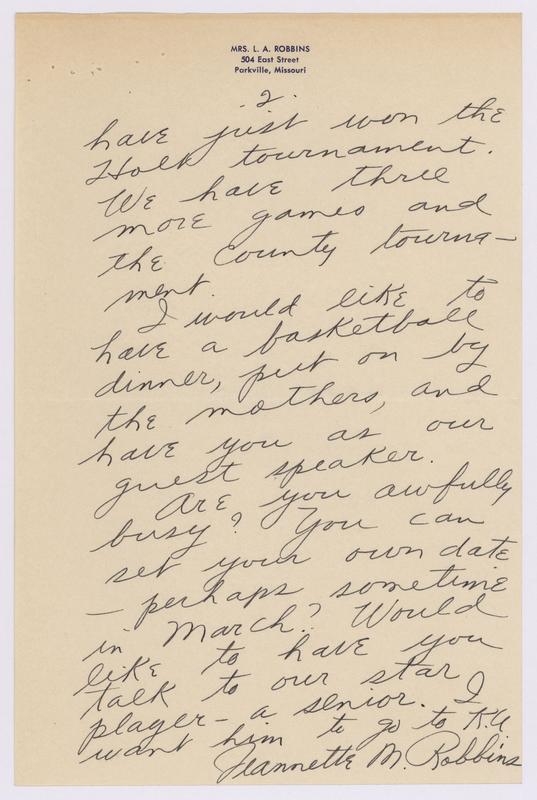 MRS. L. A. ROBBINS
504 East Street
Parkville, Missouri
2.
have just won the
Holk tournament.
We have three
more games and
the County tourna-
ment.
I would like to
have a basketball
dinner, put on by
the mothers, and
have you as our
guest speaker.
Are you awfully
busy? You can
set your own date
— perhaps sometime
in March? Would
like to have you
talk to our star
player — a senior. I
want him to go to K.U.
Jeannette M. Robbins